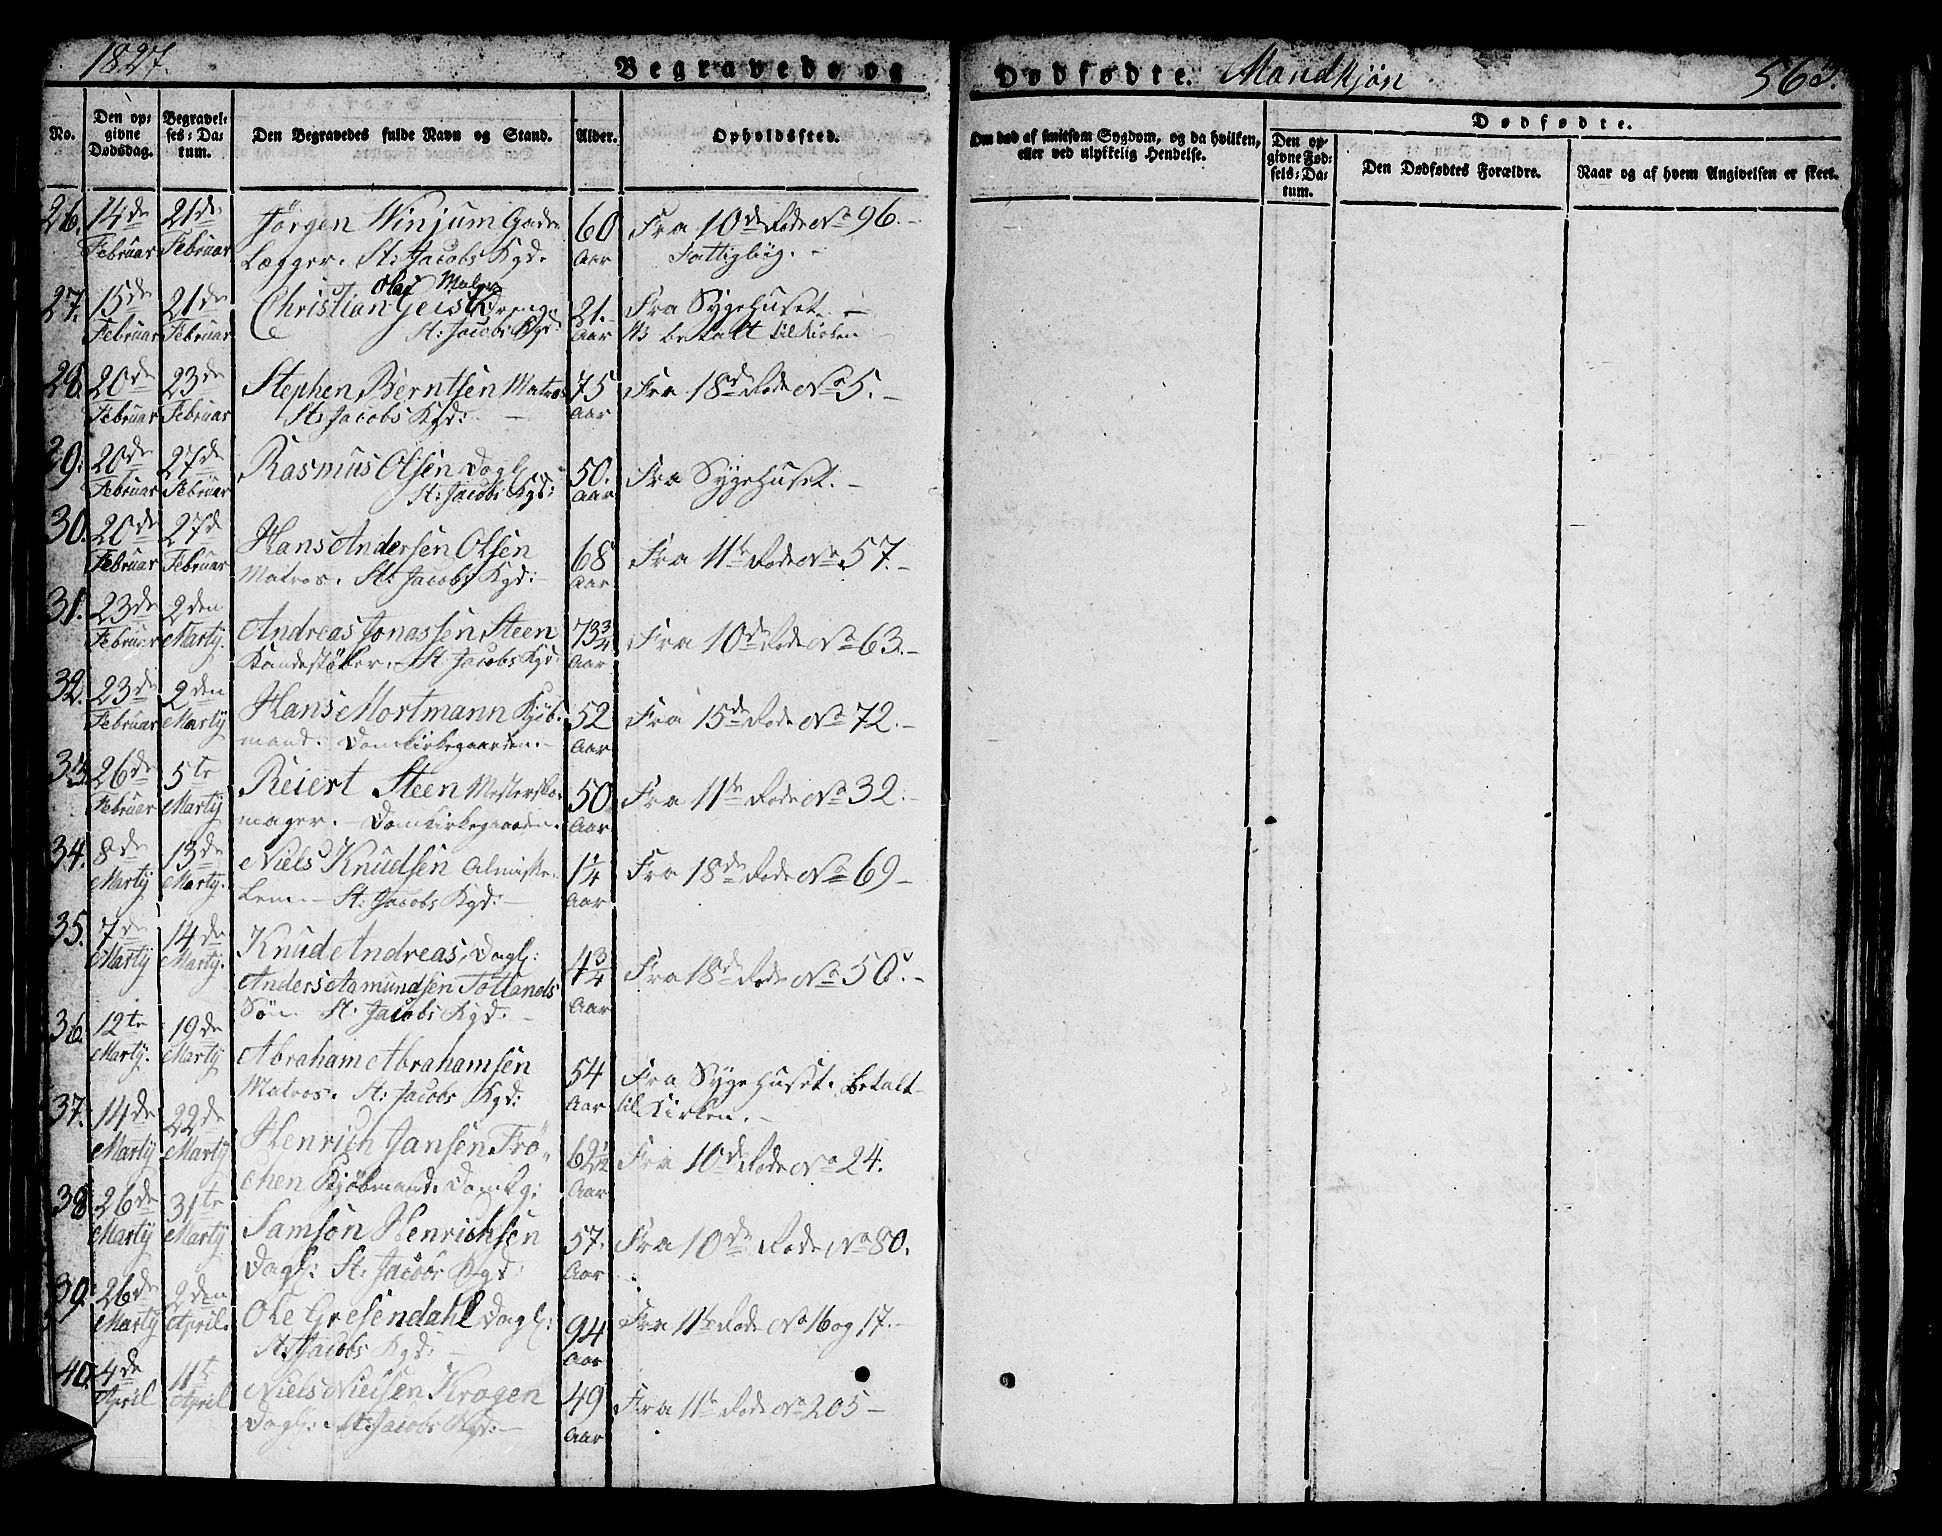 1827.
Begravede og
Dødfødte. Mandkjøn
563.
No.
Den opgivne Dødsdag.
Begravelses-Datum.
Den Begravedes fulde Navn og Stand.
Alder.
Opholdssted.
Om død af smitsom Sygdom, og da hvilken, eller ved ulykkelig Hendelse.
Dødfødte.
Den opgivne Fødsels-Datum.
Den Dødfødtes Forældre.
Naar og af hvem Angivelsen er skeet.
26. 14de Februar 21de Februar Jörgen Winjum Gade- 60 Aar Fra 10de Rode No 96.-
Lægger. St: Jacobs Kgd. Fattigliig.-
27. 15de Februar 21de Februar Christian Olai Geist Maler Dreng. 21. Aar Fra Sygehuset.-
St: Jacobs Kgd: betalt til Kirken
28. 20de Februar 23de Februar Stephen Berntsen Matros 75 Aar Fra 18de Rode No 5.-
St: Jacobs Kgd:-
29. 20de Februar 27de Februar Rasmus Olsen Dagl: 50. Aar Fra Sygehuset.-
St: Jacobs Kgd:
30. 20de Februar 27de Februar Hans Andersen Olsen 68 Aar Fra 11te Rode No 57.-
Matros. St: Jacobs Kgd:-
31. 23de Februar 2den Martÿ. Andreas Jonassen Steen 73 3/4 Aar Fra 10de Rode No 63.-
Kandestöber. St: Jacobs Kgd:
32. 23de Februar 2den Martÿ Hans Mortmann Kjöb- 52 Aar Fra 15de Rode No 72.-
mand. Domkirkegaarden.-
33. 26de Februar 5te Martÿ Reiert Steen Mesterskо- 50 Aar Fra 11te Rode No 32.-
mager.- Domkirkegaarden.
34. 8de Martÿ 13de Martÿ. Niels Knudsen Almisse- 1 1/4 Aar Fra 18de Rode No 69-
Lem.- St: Jacobs Kgd:-
35. 7de Martÿ 14de Martÿ. Knud Andreas, Dagl: 4 3/4 Aar Fra 18de Rode No 50.-
Anders Aamundsen Totlands
Sön. St: Jacobs Kgd.-
36. 12te Martÿ. 19de Martÿ Abraham Abrahamsen 54 Aar Fra Sygehuset. Betalt
Matros. St: Jacobs Kgd: til Kirken.-
37. 14de Martÿ 22de Martÿ Henrich Jansen Frö- 62 1/2 Aar Fra 10de Rode No 24.
chen Kjöbmand. Domkg:
38. 26de Martÿ 31te Martÿ Samson Henrichsen 57. Aar Fra 10de Rode No 80.
Dagl: St: Jacobs Kgd:
39. 26de Martÿ 2den April. Ole Gresendahl Dagl: 94 Aar Fra 11te Rode No 16 og 17.-
St: Jacobs Kgd:-
40. 4de April 11te April Niels Nielsen Krogen 49 Aar Fra 11te Rode No 205-
Dagl: St: Jacobs Kgd:-